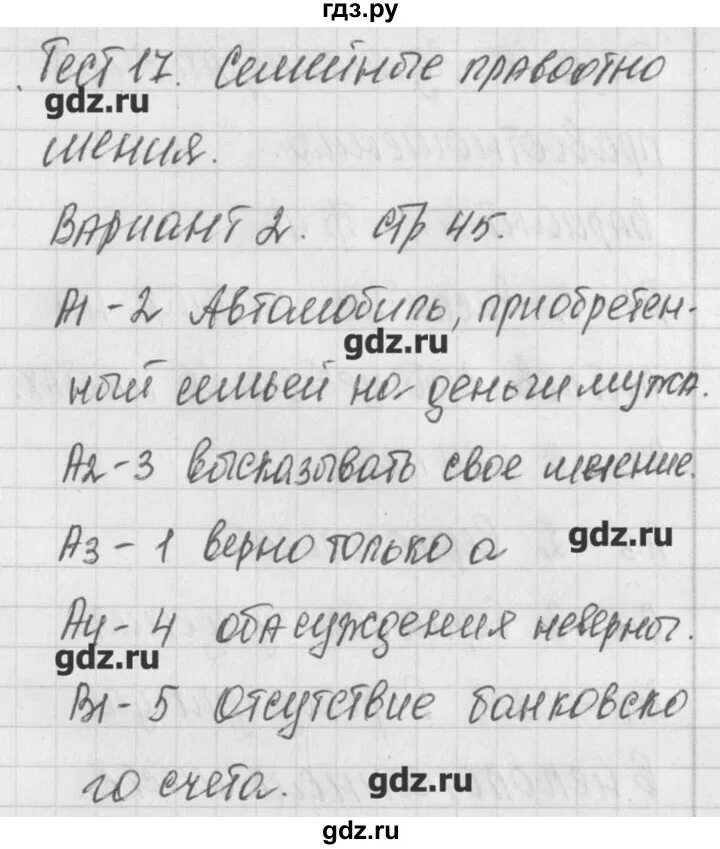 гдз.ру
Тест 17. Семейные правоотно
gdz.ru
шения.
Вариант 2. стр 45.
А1-2 Автомобиль, приобретен-
gdz.ru
ный семьей на деньги мужа.
А2-3 высказывать свое мнение.
А3-1 верно только а
gdz.ru
А4-4 оба суждения неверны.
gdz.ru
В1-5 Отсутствие банковско
го счета.
gdz.ru
gdz.ru